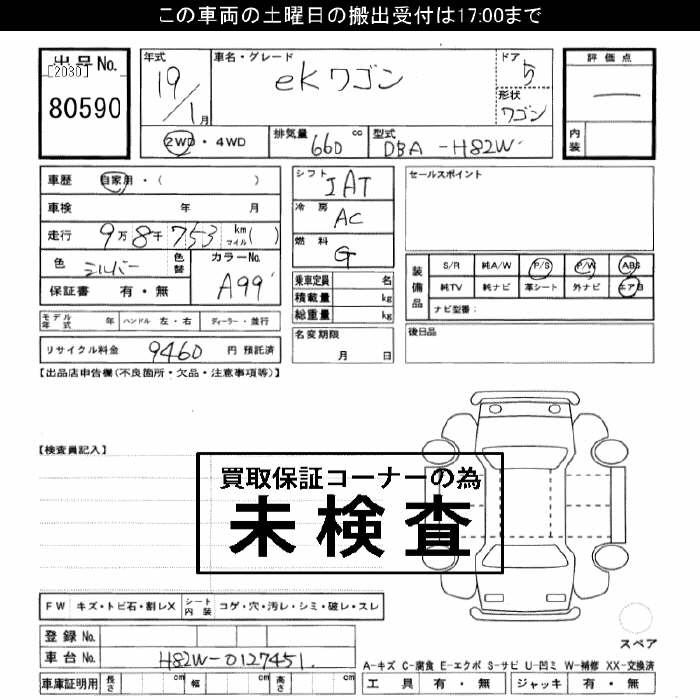 この車両の土曜日の搬出受付は17:00まで
出品No.
[2030]
80590
年式 19/1月
車名・グレード ekワゴン
ドア 5
形状 ワゴン
2WD・4WD
排気量 660 cc
型式 DBA-H82W
評価点 —
内装
車歴 自家用・( )
車検 年 月
走行 9万8千753 km マイル( )
色 シルバー 色替
カラーNo. A99
保証書 有・無
シフト IAT
冷房 AC
燃料 G
乗車定員 名
積載量 kg
総重量 kg
セールスポイント
装備品 S/R 純A/W P/S P/W ABS
純TV 純ナビ 革シート 外ナビ エアB
ナビ型番:
モデル年式 年 ハンドル 左・右 ディーラー・並行
リサイクル料金 9460 円 預託済
名変期限 月 日
後日品
【出品店申告欄(不良箇所・欠品・注意事項等)】
【検査員記入】
買取保証コーナーの為
未検査
FW キズ・トビ石・割レX シート内装 コゲ・穴・汚レ・シミ・破レ・スレ
登録No.
車台No. H82W-0127451
車庫証明用 長さ cm 幅 cm 高さ cm
スペア
A-キズ C-腐食 E-エクボ S-サビ U-凹ミ W-補修 XX-交換済
工具 有・無 ジャッキ 有・無